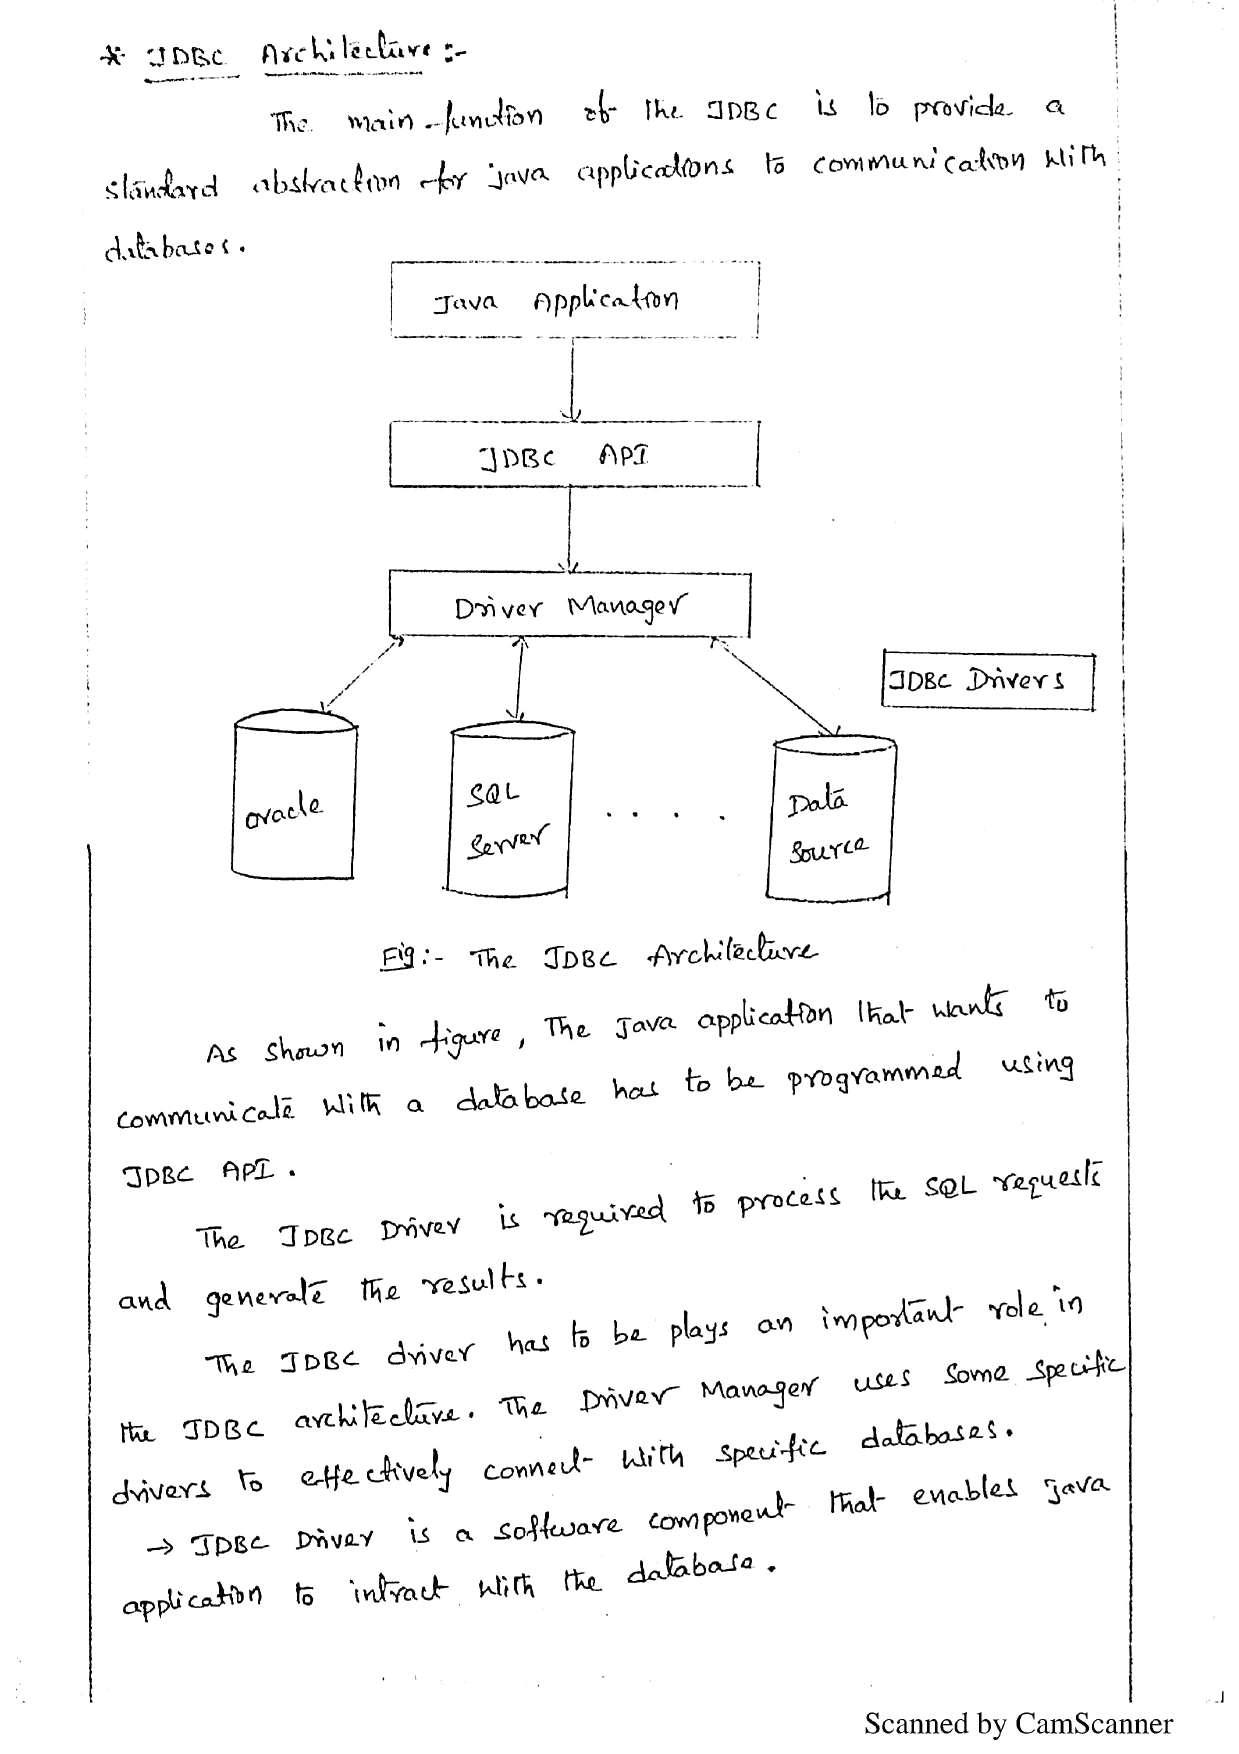 * JDBC Architecture :-
The main function of the JDBC is to provide a
standard abstraction for java applications to communication with
databases.
Java Application
JDBC API
Driver Manager
JDBC Drivers
oracle
SQL
Server
. . . .
Data
Source
Fig:- The JDBC Architecture
As shown in figure, The Java application that wants to
communicate with a database has to be programmed using
JDBC API.
The JDBC Driver is required to process the SQL requests
and generate the results.
The JDBC driver has to be plays an important role in
the JDBC architecture. The Driver Manager uses some specific
drivers to effectively connect with specific databases.
→ JDBC Driver is a software component that enables java
application to intract with the database.
Scanned by CamScanner